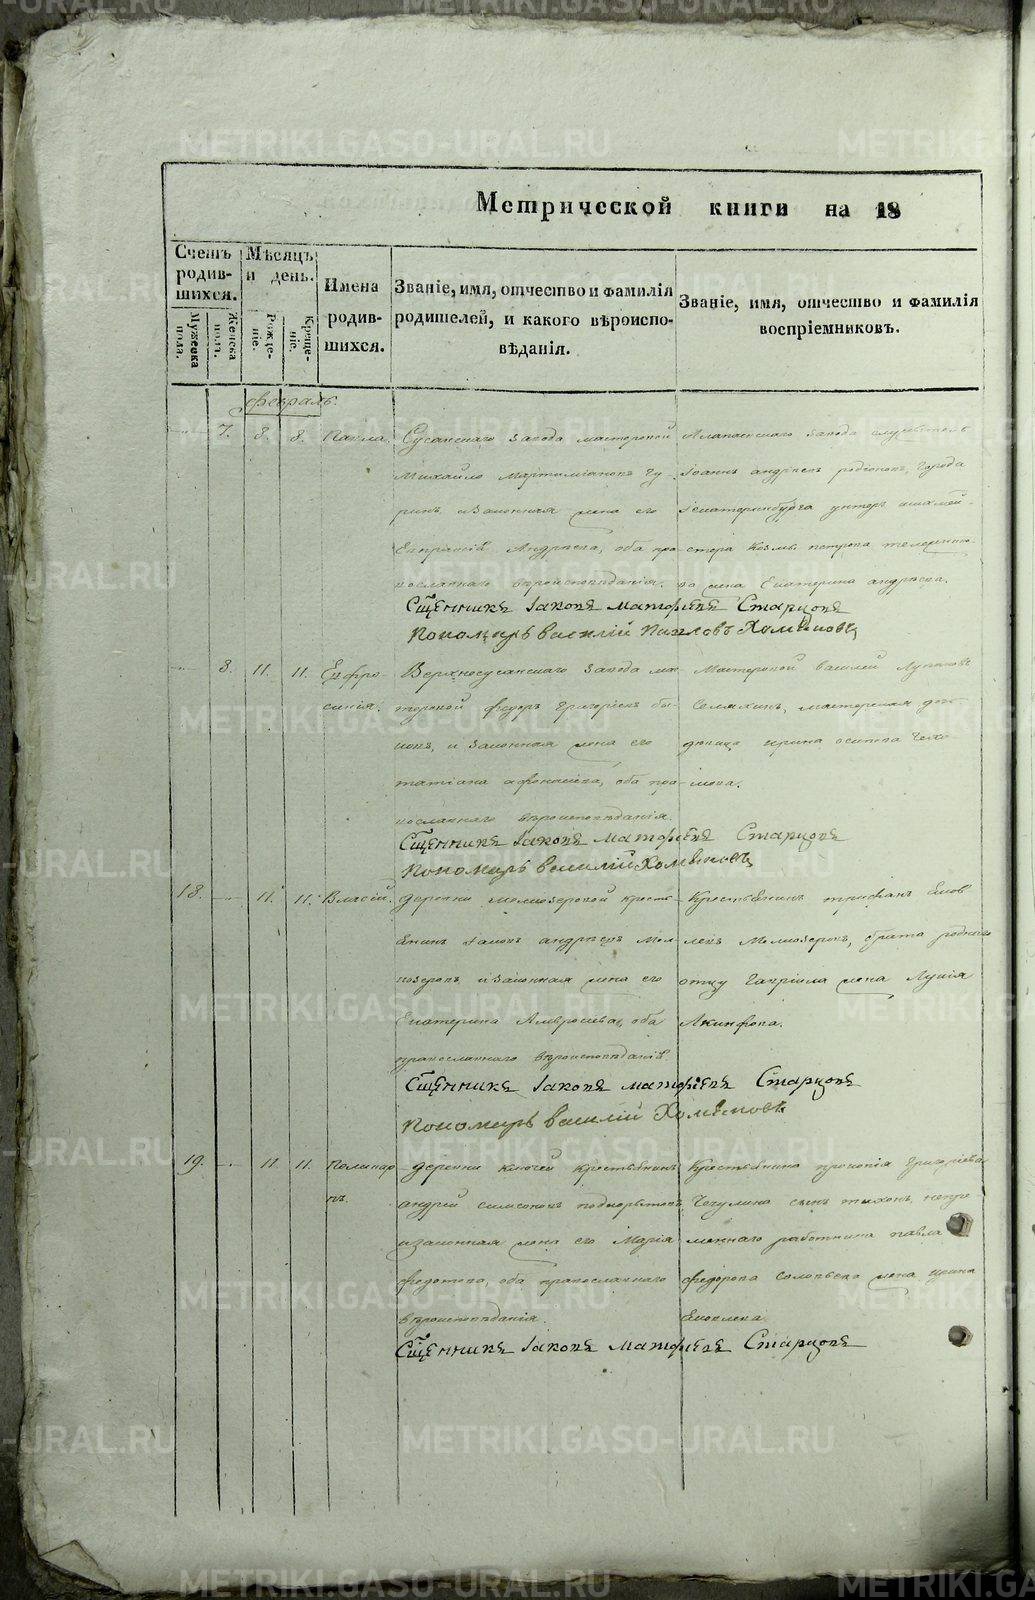 Метрической книги на 18
Счетъ родив-шихся.
Мужеска пола.
Женска пола.
Мѣсяцъ и день.
Рожде-ніе.
Креще-ніе.
Имена родив-шихся.
Званіе, имя, отчество и фамилія родителей, и какого вѣроиспо-вѣданія.
Званіе, имя, отчество и фамилія воспріемниковъ.
февраль.
7. 8. 8. Павла.
Сусанскаго завода мастеровой
Михайло Мартиміановъ Гу-
ринъ и законная жена его
Евпраксія Андрѣева, оба пра-
вославнаго вѣроисповѣданія.
Алапаевскаго завода служитель
Іоаннъ андрѣевъ родіоновъ, города
Екатеринбурга унтеръ шихмей-
стера Козмы петрова
жена Екатерина андрѣева.
Сщ҃енникъ Іаковъ матфѣевъ Старцовъ
Пономарь василій Павловъ Хомяковъ
8. 11. 11. Евфро-
синія.
Верхносусанскаго завода мас-
теровой федоръ григорьевъ бы-
ковъ, и законная жена его
татіана афонасьева, оба пра-
вославнаго вѣроисповѣданія.
Мастеровой василей Луповъ
Селянинъ, мастерская дѣ-
вица ирина осипова
Сщ҃енникъ Іаковъ Матфѣевъ Старцовъ
Пономарь василій Хомяковъ
18. 11. 11. Власій.
деревни молвозеровой кресть-
янинъ Іаковъ андрѣевъ Мол-
возеровъ, и законная жена его
Екатерина Амвросьева, оба
православнаго вѣроисповѣданія
Крестьянинъ трифанъ Яков
левъ Молвозеровъ, брата роднаго
отцу Гавріила жена Лукія
Акинфова.
Сщ҃енникъ Іаковъ матфѣевъ Старцовъ
Пономарь василій Хомяковъ
19. 11. 11. Поликарпъ.
деревни ключей крестьянинъ
андрей симеоновъ подкорытовъ
и законная жена его Марія
федотова, оба православнаго
вѣроисповѣданія.
Крестьянина прокопія григорьева
Чечулина сынъ тихонъ, непре
меннаго работника павла
федорова Соловьева жена ирина
Яковлева
Сщ҃енникъ Іаковъ Матфѣевъ Старцовъ
METRIKI.GASO-URAL.RU